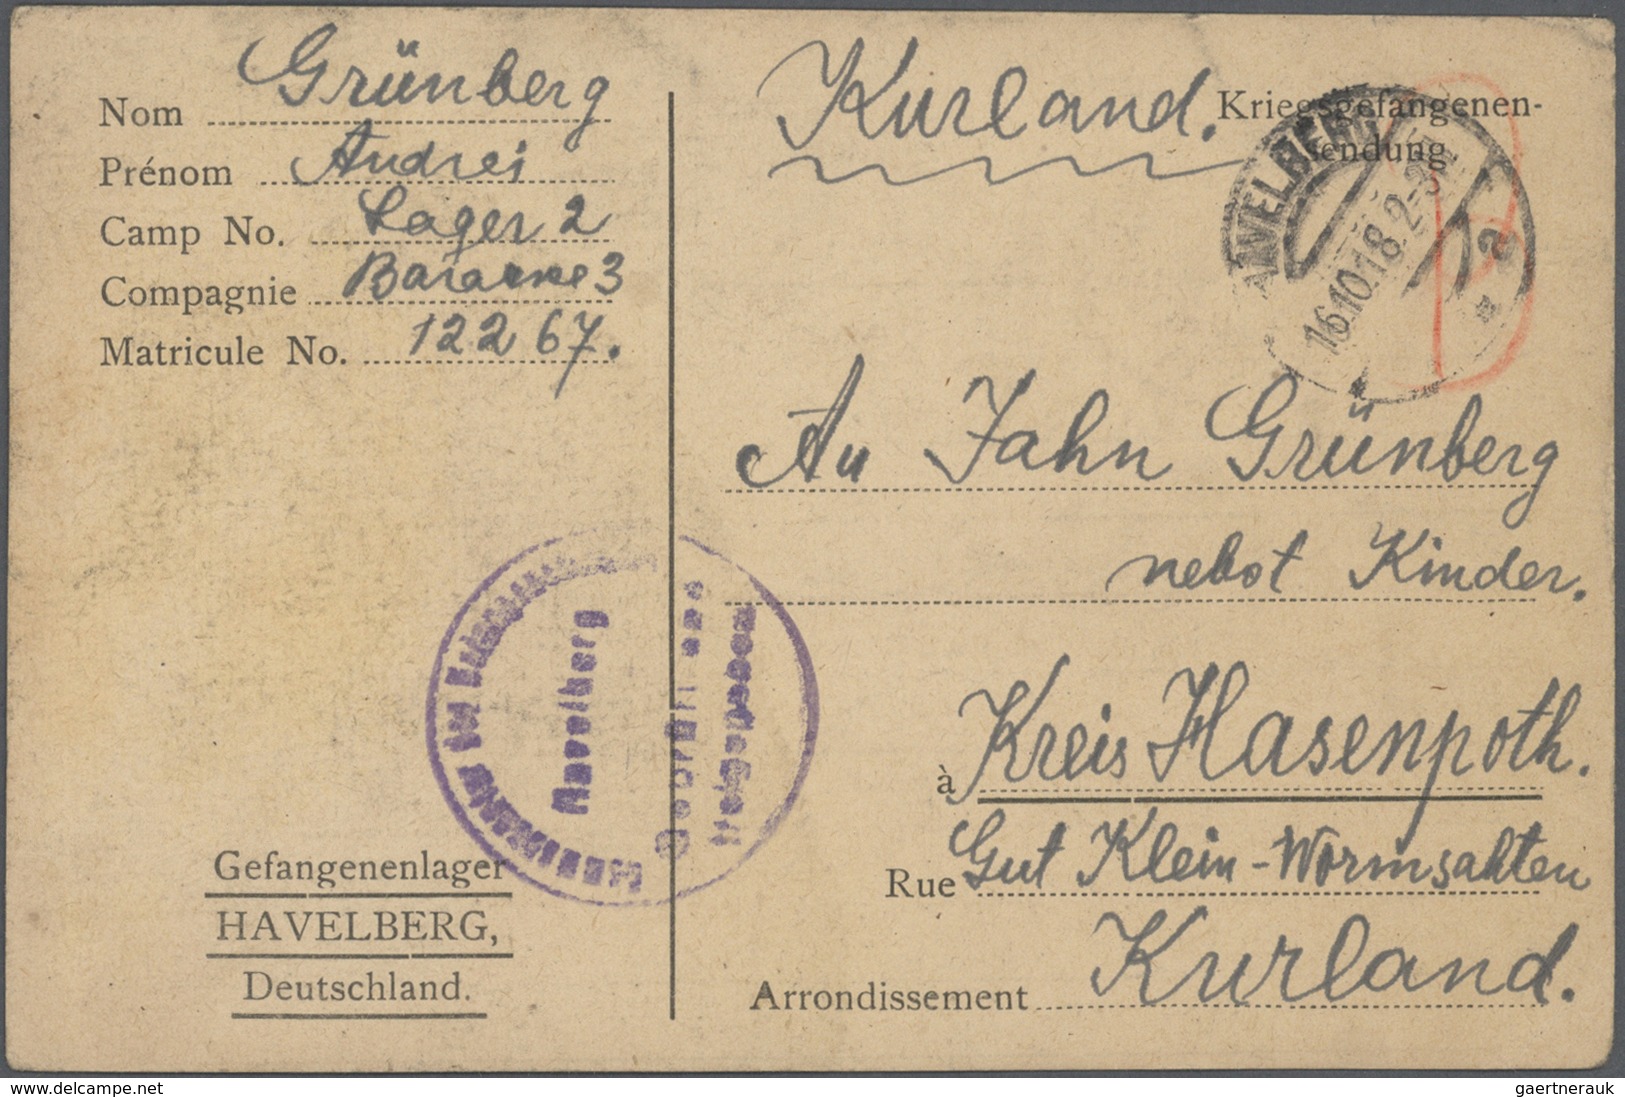 Nom Grünberg
Prénom Andrei
Camp No. Lager 2
Compagnie Bararke 3
Matricule No. 12267.
Gefangenenlager
HAVELBERG,
Deutschland.
Havelberg
Geprüft und
freigegeben
Kurland.
Kriegsgefangenen-
sendung
HAVELBERG
16.10.18.2-3N
a
An Jahn Grünberg
nebst Kinder.
à Kreis Hasenpoth.
Rue Gut Klein-Wormsahten
Arrondissement Kurland.
www.delcampe.net
gaertnerauk